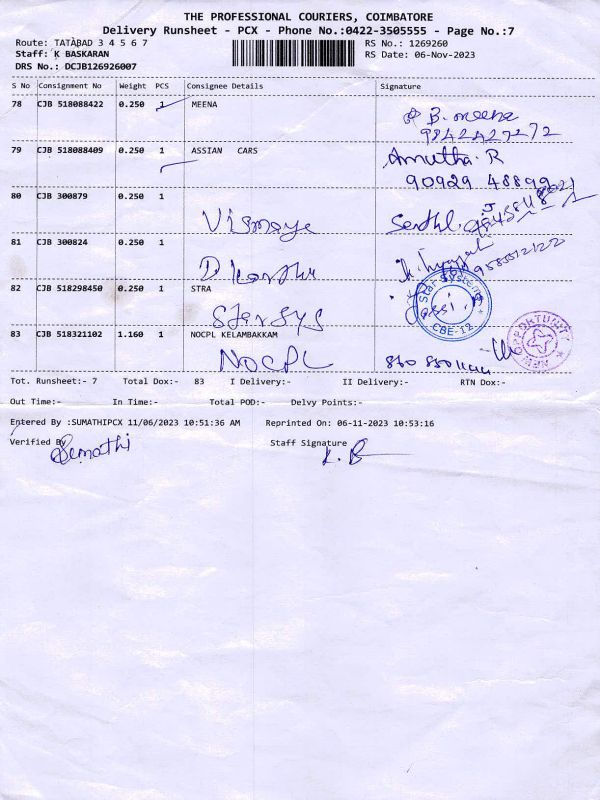 THE PROFESSIONAL COURIERS, COIMBATORE
Delivery Runsheet - PCX - Phone No.:0422-3505555 - Page No.:7
Route: TATABAD 3 4 5 6 7
RS No.: 1269260
Staff: K BASKARAN
RS Date: 06-Nov-2023
DRS No.: DCJB126926007
S No Consignment No Weight PCS Consignee Details Signature
78 CJB 518088422 0.250 1 MEENA
B. meena
79 CJB 518088409 0.250 1 ASSIAN CARS Amutha. R
90929 48899
80 CJB 300879 0.250 1
Vismaya Senthil.
81 CJB 300824 0.250 1
82 CJB 518298450 0.250 1 STRA
Star Systems
CBE-12
Starsys
83 CJB 518321102 1.160 1 NOCPL KELAMBAKKAM
NOCPL
NEW OPPORTUNITY
Tot. Runsheet:- 7 Total Dox:- 83 I Delivery:- II Delivery:- RTN Dox:-
Out Time:- In Time:- Total POD:- Delvy Points:-
Entered By :SUMATHIPCX 11/06/2023 10:51:36 AM Reprinted On: 06-11-2023 10:53:16
Verified By Staff Signature
Sumathi K. B